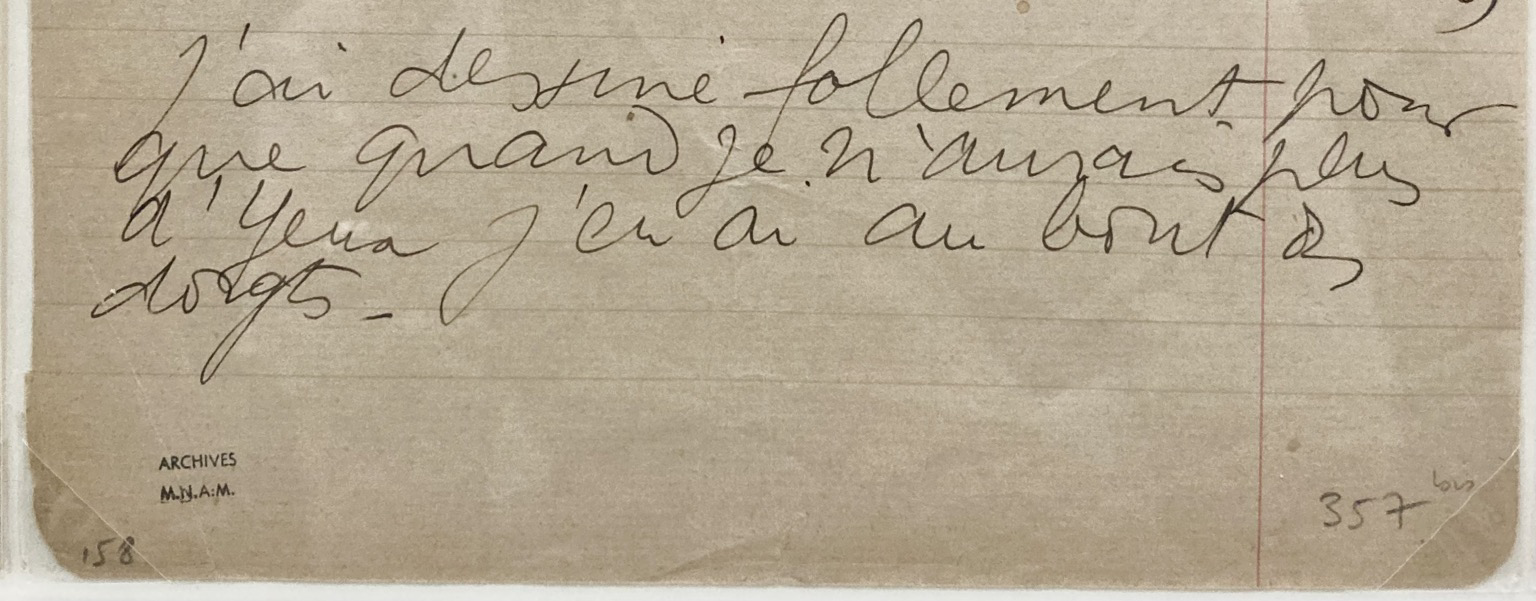 J'ai dessiné follement pour
que quand je n'aurais plus
d'Yeux j'en ai au bout des
doigts -
ARCHIVES
M.N.A.M.
158
357 bis